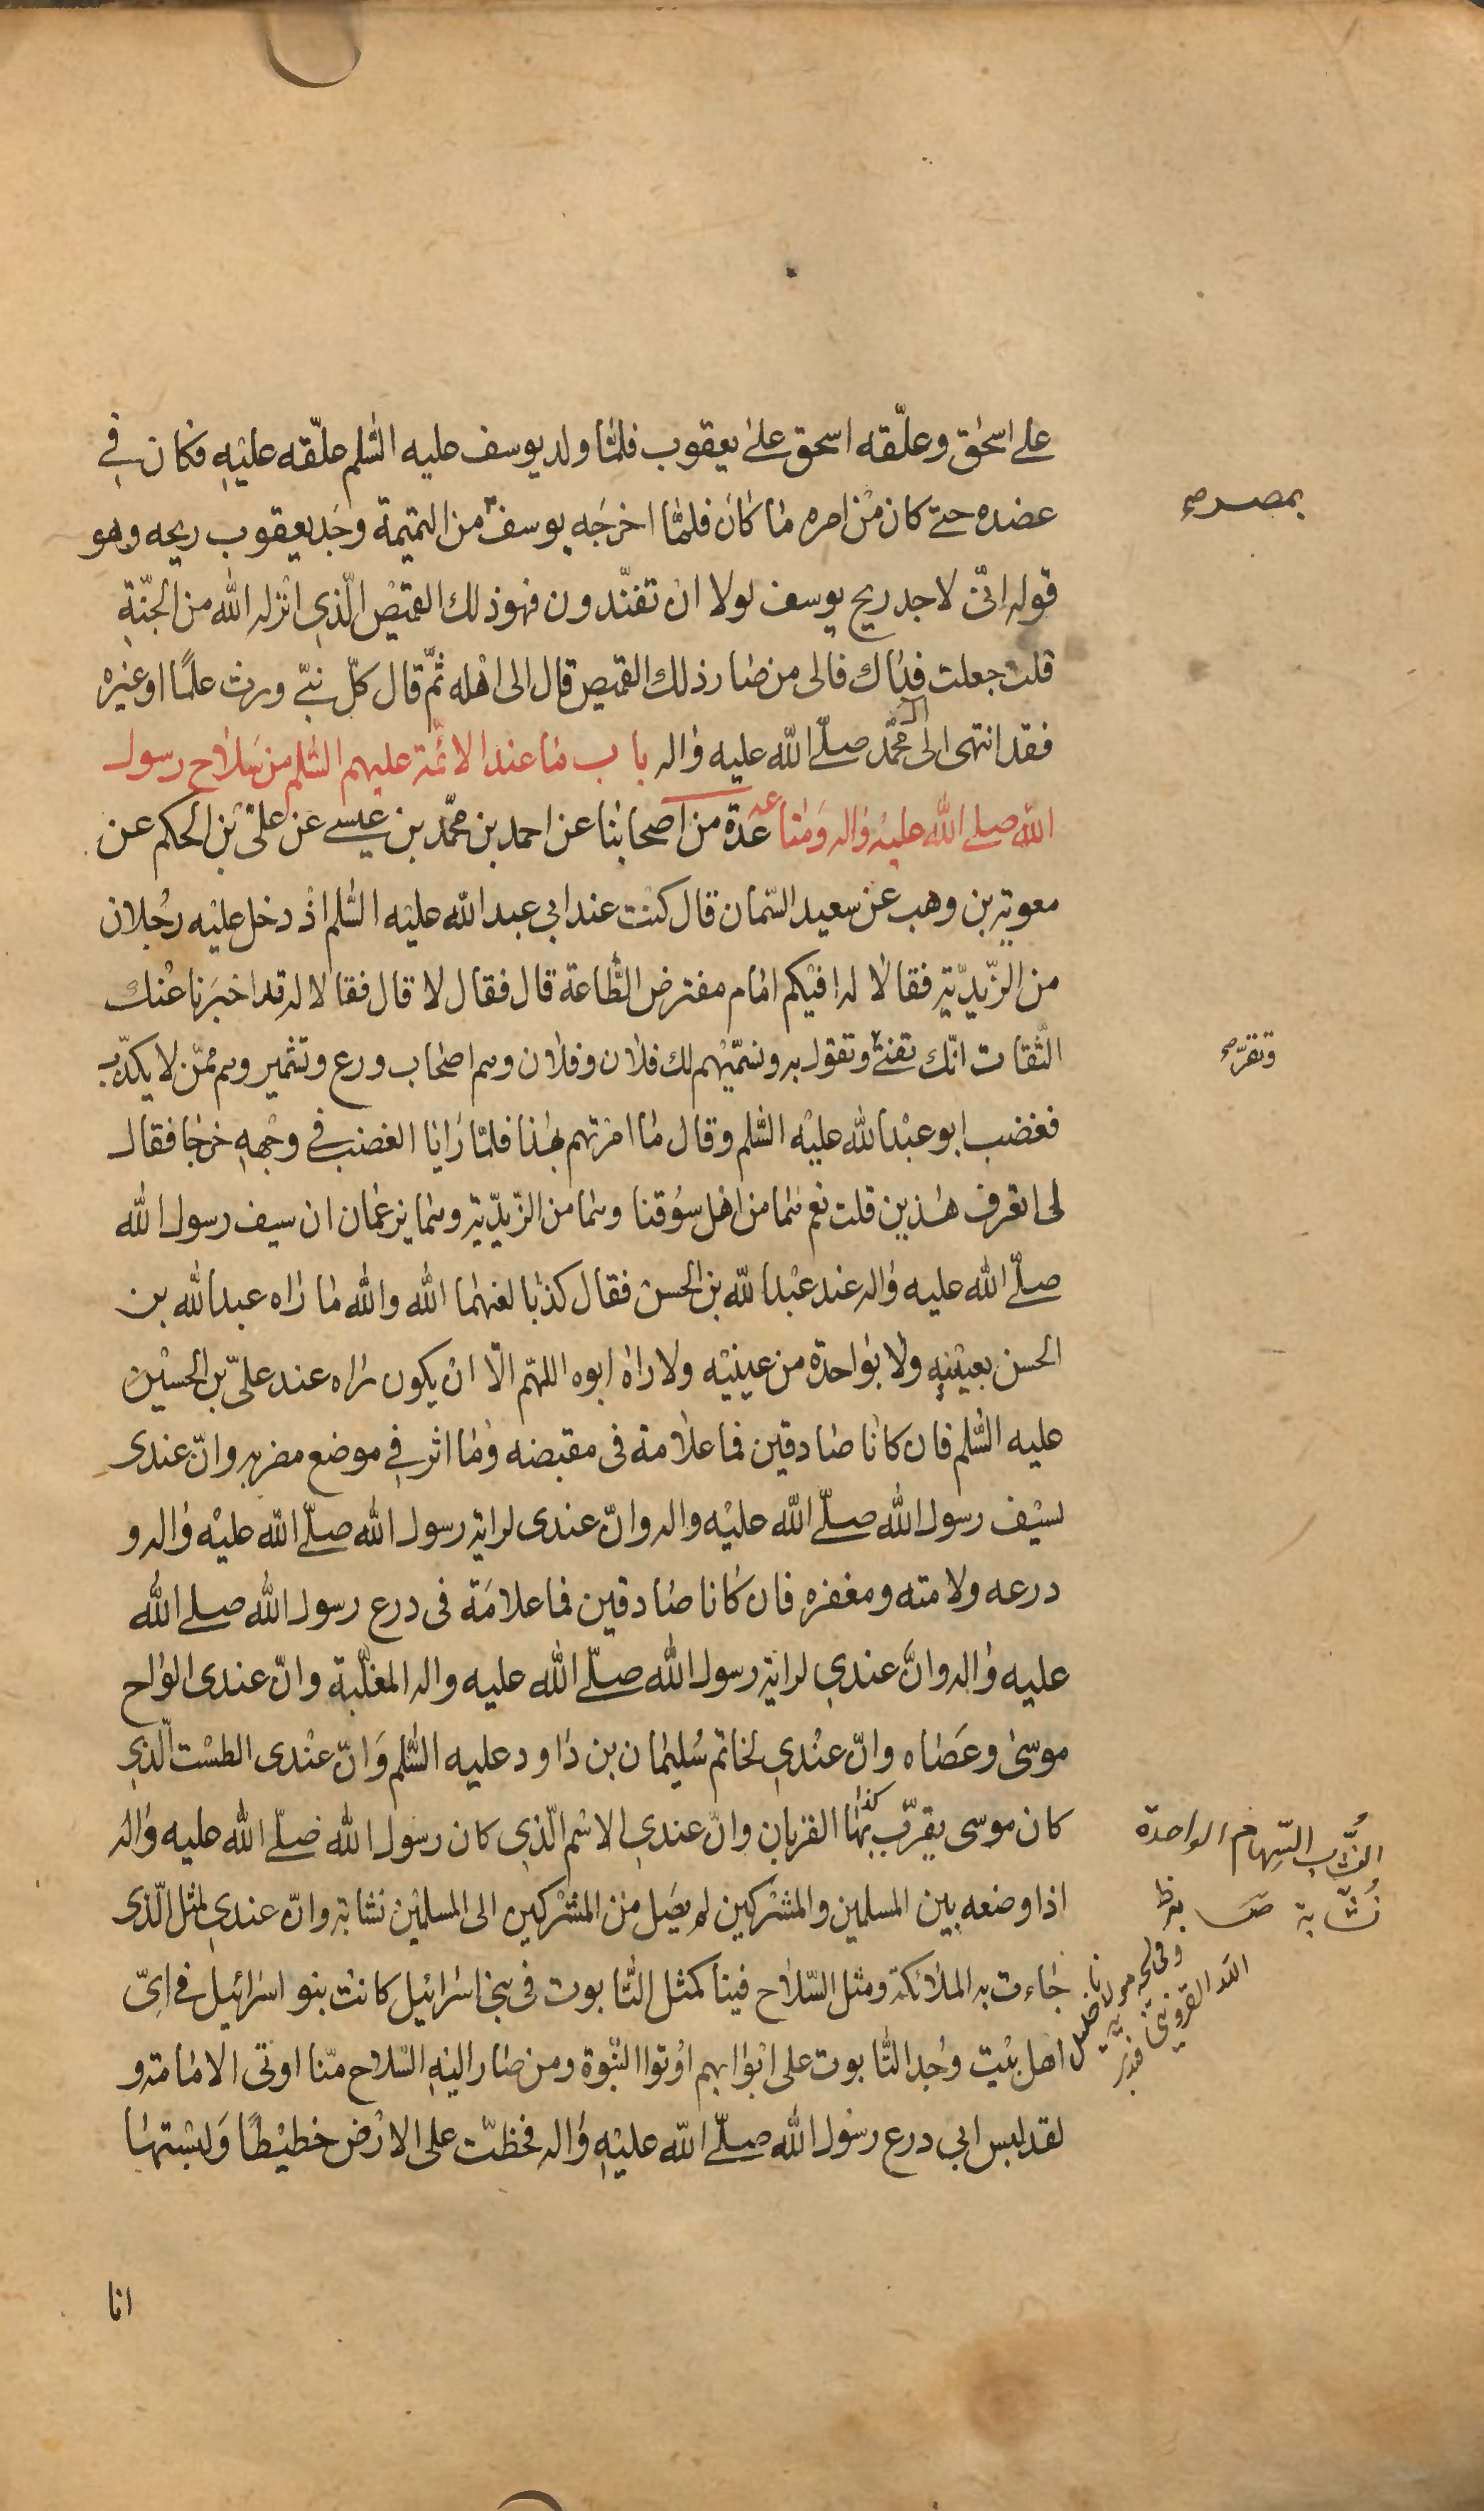 على اسحق وعلّقه اسحق على يعقوب فلمّا ولد يوسف عليه السّلم علّقه عليه فكان في
عضده حتى كان من امره ما كان فلمّا اخرجه يوسف من التميمة وجد يعقوب ريحه وهو
بمصر صح
قوله انّى لاجد ريح يوسف لولا ان تفنّدون فهو ذلك القميص الّذى انزله الله من الجنّة
قلت جعلت فداك فالى من صار ذلك القميص قال الى اهله ثمّ قال كلّ نبىّ ورث علمًا او غيره
فقد انتهى الى محمّد صلّى الله عليه واله باب ما عند الائمّة عليهم السّلم من سلاح رسول
آل
الله صلى الله عليه واله ومتاعه عدّة من اصحابنا عن احمد بن محمّد بن عيسى عن علىّ بن الحكم عن
معوية بن وهب عن سعيد السّمان قال كنت عند ابي عبد الله عليه السّلم اذ دخل عليه رجلان
من الزّيديّة فقالا له افيكم امام مفترض الطّاعة قال فقال لا قال فقالا له قد اخبرنا عنك
الثّقات انّك تفتى وتقول به ونسمّيهم لك فلان وفلان وهم اصحاب ورع وتشمير وهم ممّن لا يكذّب
وتقرّ صح
فغضب ابو عبد الله عليه السّلم وقال ما امرتهم بهذا فلمّا رايا الغضب في وجهه خرجا فقال
لى اتعرف هذين قلت نعم هما من اهل سوقنا وهما من الزّيديّة وهما يزعمان ان سيف رسول الله
صلّى الله عليه واله عند عبد الله بن الحسن فقال كذبا لعنهما الله والله ما راه عبد الله بن
الحسن بعينيه ولا بواحدة من عينيه ولا راه ابوه اللهمّ الّا ان يكون راه عند علىّ بن الحسين
عليه السّلم فان كانا صادقين فما علامة فى مقبضه وما اثر في موضع مضربه وانّ عندى
لسيف رسول الله صلّى الله عليه واله وانّ عندى لراية رسول الله صلّى الله عليه واله و
درعه ولامته ومغفره فان كانا صادقين فما علامة فى درع رسول الله صلى الله
عليه واله وانّ عندي لراية رسول الله صلّى الله عليه واله المغلّبة وانّ عندى الواح
موسى وعصاه وانّ عندي لخاتم سليمان بن داود عليه السّلم وانّ عندى الطست الّذى
كان موسى يقرّب بها القربان وانّ عندي الاسم الّذى كان رسول الله صلّى الله عليه واله
كذا
اذا وضعه بين المسلمين والمشركين لم يصل من المشركين الى المسلمين نشابة وانّ عندي لمثل الّذى
النُّشّاب السّهام الواحدة
نُشّابة ص
جاءت به الملائكة ومثل السّلاح فينا كمثل التّابوت فى بنى اسرائيل كانت بنو اسرائيل فى اىّ
مولانا خليل
الله القزوينى
اهل بيت وجد التّابوت على ابوابهم اوتوا النّبوة ومن صار اليه السّلاح منّا اوتى الامامة و
لقد لبس ابي درع رسول الله صلّى الله عليه واله فخطّت على الارض خطيطًا ولبستها
انا